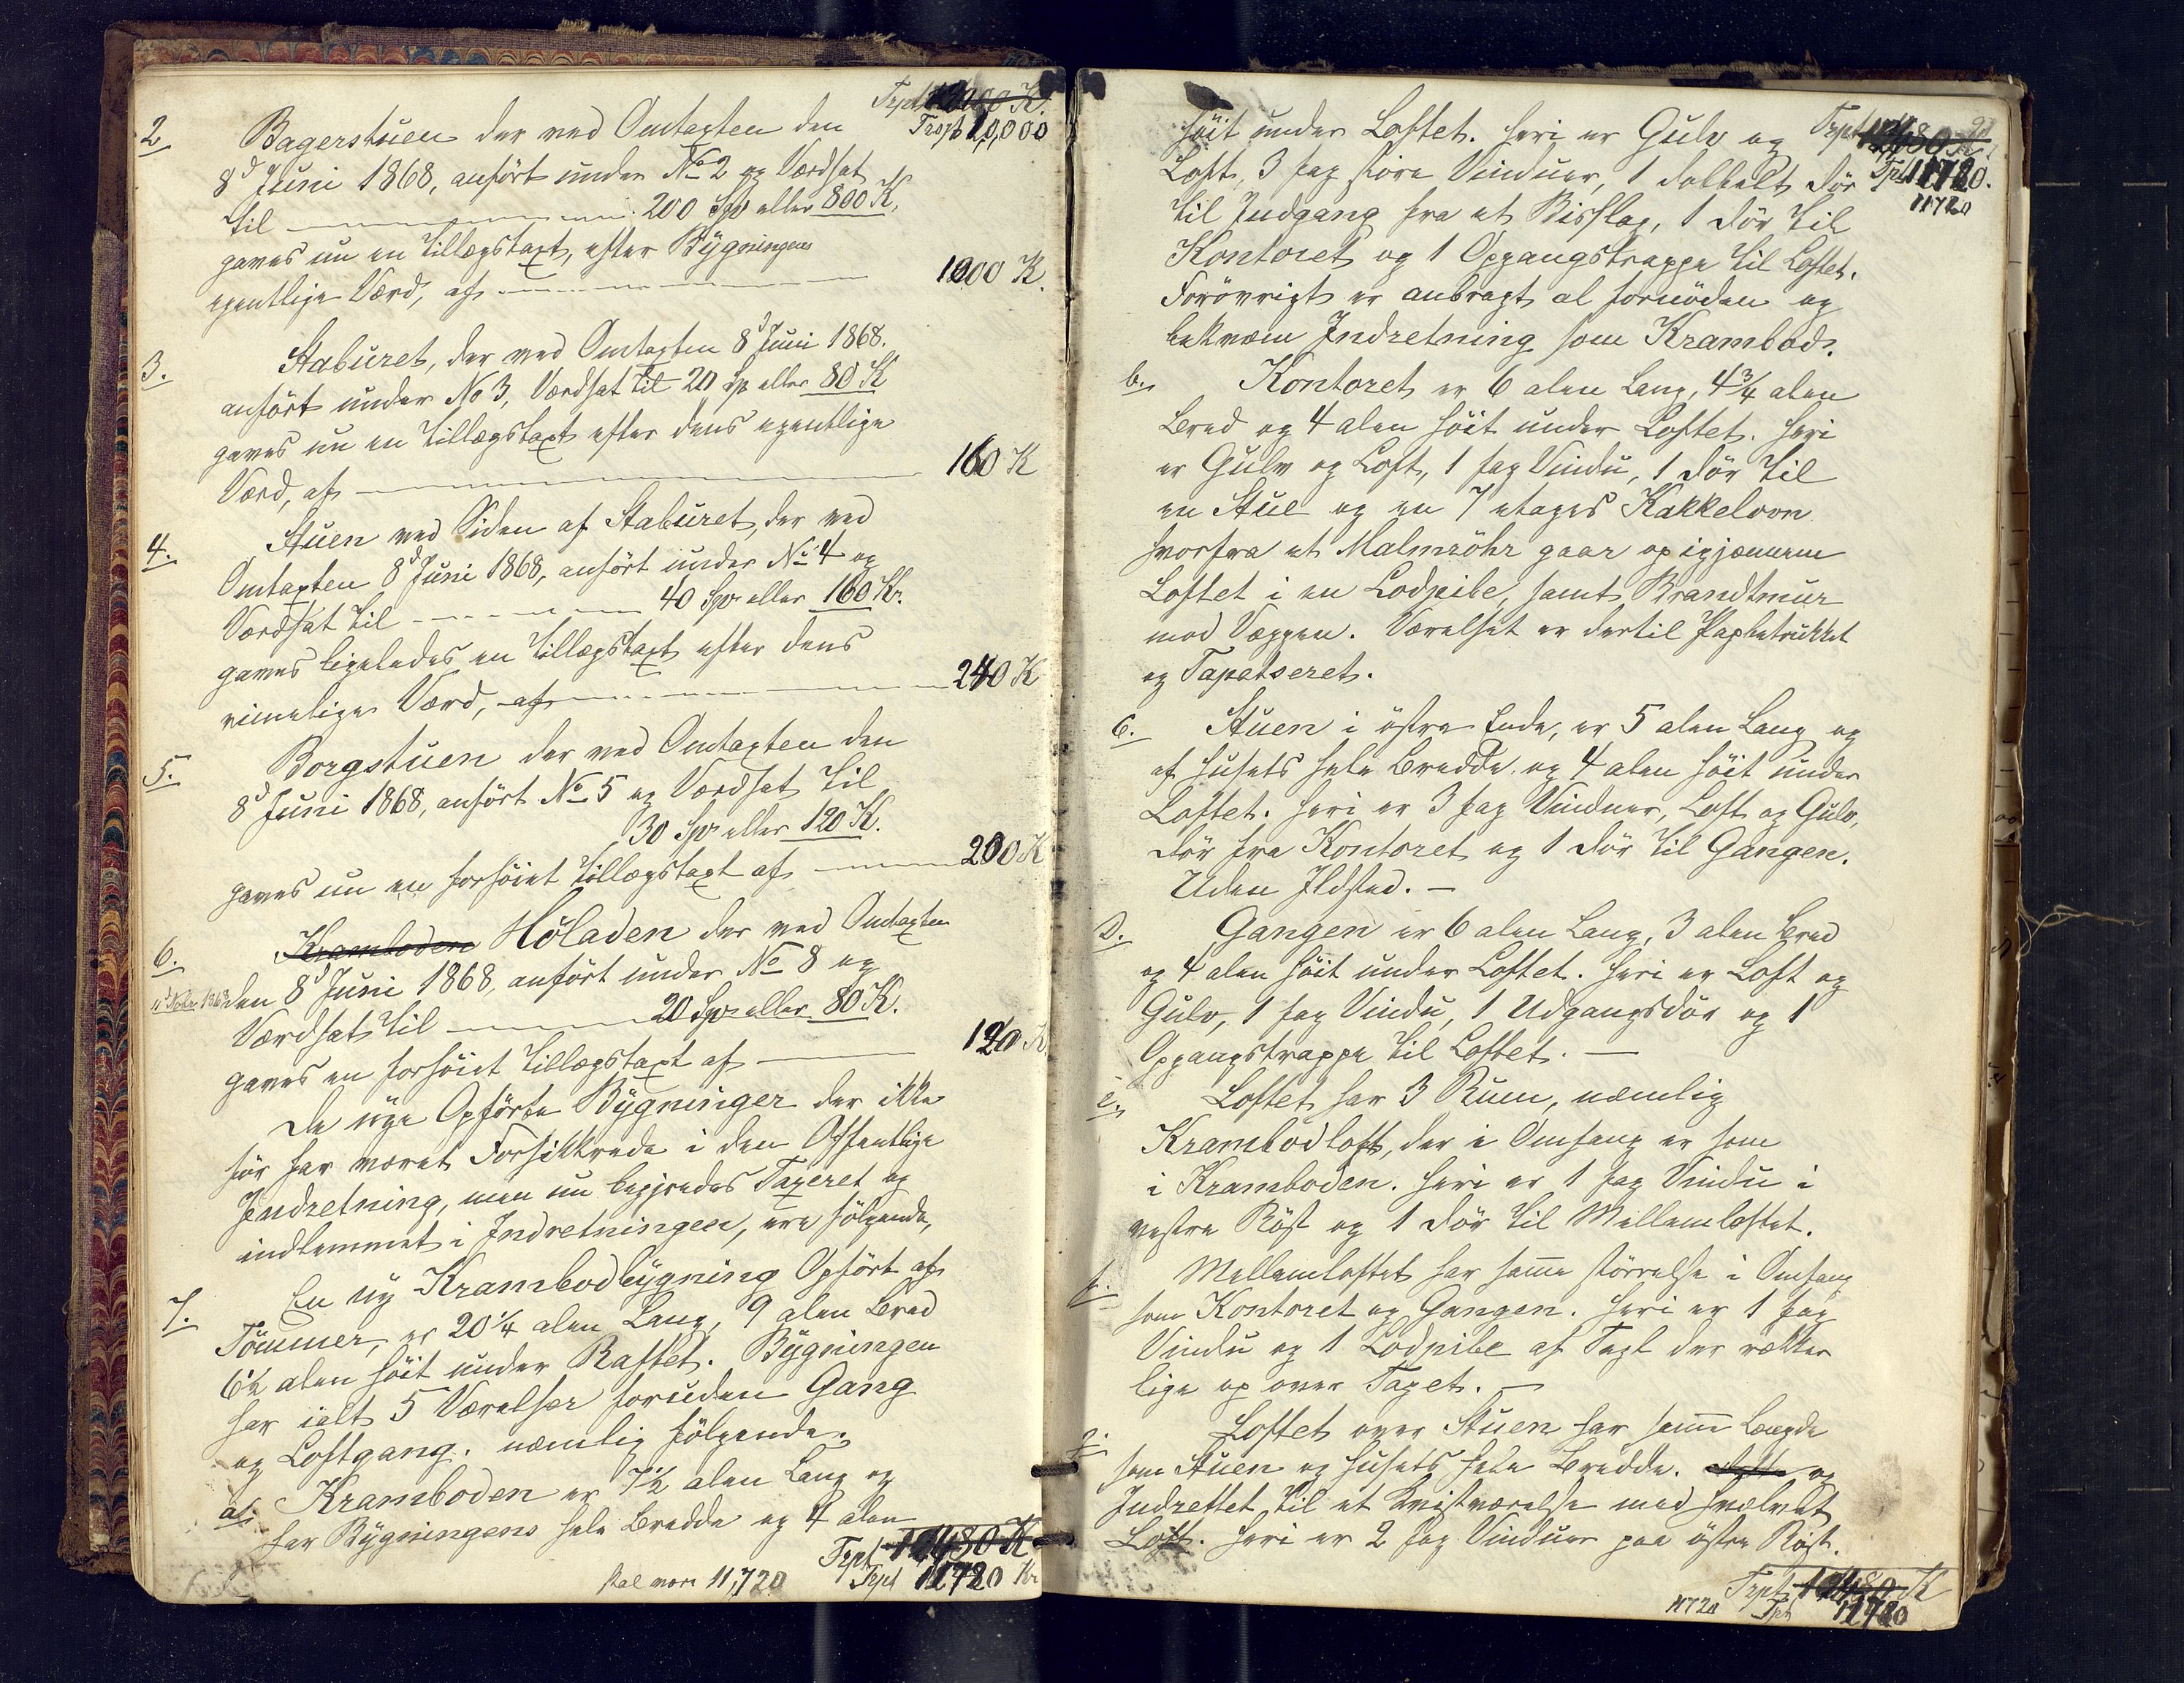 Trpt
Trspt 10,000
2 Bagerstuen der ved Omtaxten den
8d Juni 1868, anført under No 2 og Værdsat
til 200 Spd eller 800 K,
gaves nu en Tillægstaxt, efter Bygningens
egentlige Værd, af 1000 K.
3. Staburet, der ved Omtaxten 8d Juni 1868.
anført under No 3, Værdsat til 20 Sp eller 80 K
gaves nu en Tillægstaxt efter dens egentlige
Værd, af 160 K
4. Stuen ved Siden af Staburet, der ved
Omtaxten 8d Juni 1868, anført under No 4 og
Værdsat til 40 Spd eller 160 Kr.
gaves ligeledes en Tillægstaxt efter dens
rimelige Værd, af 240 K
5. Borgstuen der ved Omtaxten den
8d Juni 1868, anført No 5 og Værdsat til
30 Spd eller 120 K.
gaves nu en forhöiet Tillægstaxt af 200 K
6. Kramboden Höladen der ved Omtaxten
den 8d Juni 1868, anført under No 8 og
Værdsat til 20 Spd eller 80 K.
gaves en forhöiet Tillægstaxt af 120 K
De nye Opförte Bygninger der ikke
för har været Forsikkrede i den Offentlige
Indretning, men nu begjærdes Taxeret og
indlemmet i Indretningen, ere fölgende,
7. En ny Krambodbygning Opfört af
Tömmer, er 20 1/4 alen Lang, 9 alen Bred
6 1/2 alen höit under Raftet. Bygningen
har ialt 5 Værelser foruden Gang
og Loftgang. nemlig fölgende.
a. Kramboden er 7 1/2 alen Lang og
har Bygningens hele Bredde og 4 alen
Trpt 12480 K
skal være 11,720 Trpt 11720 Kr
höit under Loftet. Heri er Gulv og Trpt
Loft, 3 fag store Vinduer, 1 dobbelt Dör Trpt 11720.
til Indgang fra et Bislag, 1 Dör til 11720
Kontoret og 1 Opgangstrappe til Loftet.
Forövrigt er anbragt al fornöden og
bekvæm Indretning som Krambod.
b. Kontoret er 6 alen Lang, 4 3/4 alen
Bred og 4 alen höit under Loftet. Heri
er Gulv og Loft, 1 fag Vindu, 1 Dör til
en Stue og en 7 etages Kakkelovn
hvorfra et Malmröhr gaar op igjennem
Loftet i en Lodpibe, samt Brandtmur
mod Væggen. Værelset er dertil Papbetrukket
og Tapetseret.
c. Stuen i östre Ende, er 5 alen Lang og
af husets hele Bredde, og 4 alen höit under
Loftet. Heri er 3 fag Vinduer, Loft og Gulv,
Dör fra Kontoret og 1 Dör til Gangen.
Uden Ildsted. —
d. Gangen er 6 alen Lang, 3 alen Bred
og 4 alen höit under Loftet. Heri er Loft og
Gulv, 1 fag Vindu, 1 Udgangsdör og 1
Opgangstrappe til Loftet. —
e. Loftet har 3 Rum, nemlig
Krambodloft, der i Omfang er som
i Kramboden. Heri er 1 fag Vindu i
vestre Röst og 1 Dör til Mellemloftet.
f. Mellemloftet har samme störrelse i Omfang
som Kontoret og Gangen. Heri er 1 fag
Vindu og 1 Lodpibe af Tegl der rækker
lige op over Taget. —
g. Loftet over Stuen har samme Længde
som Stuen og husets hele Bredde. og
Indrettet til et Kvistværelse med hvælvet
Loft. Heri er 2 fag Vinduer paa östre Röst.
Trpt 12480 K
11720 Trpt 11720